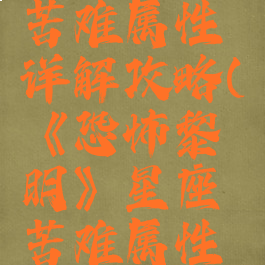 苦难属性
详解攻略(
《恐怖黎
明》星座
苦难属性